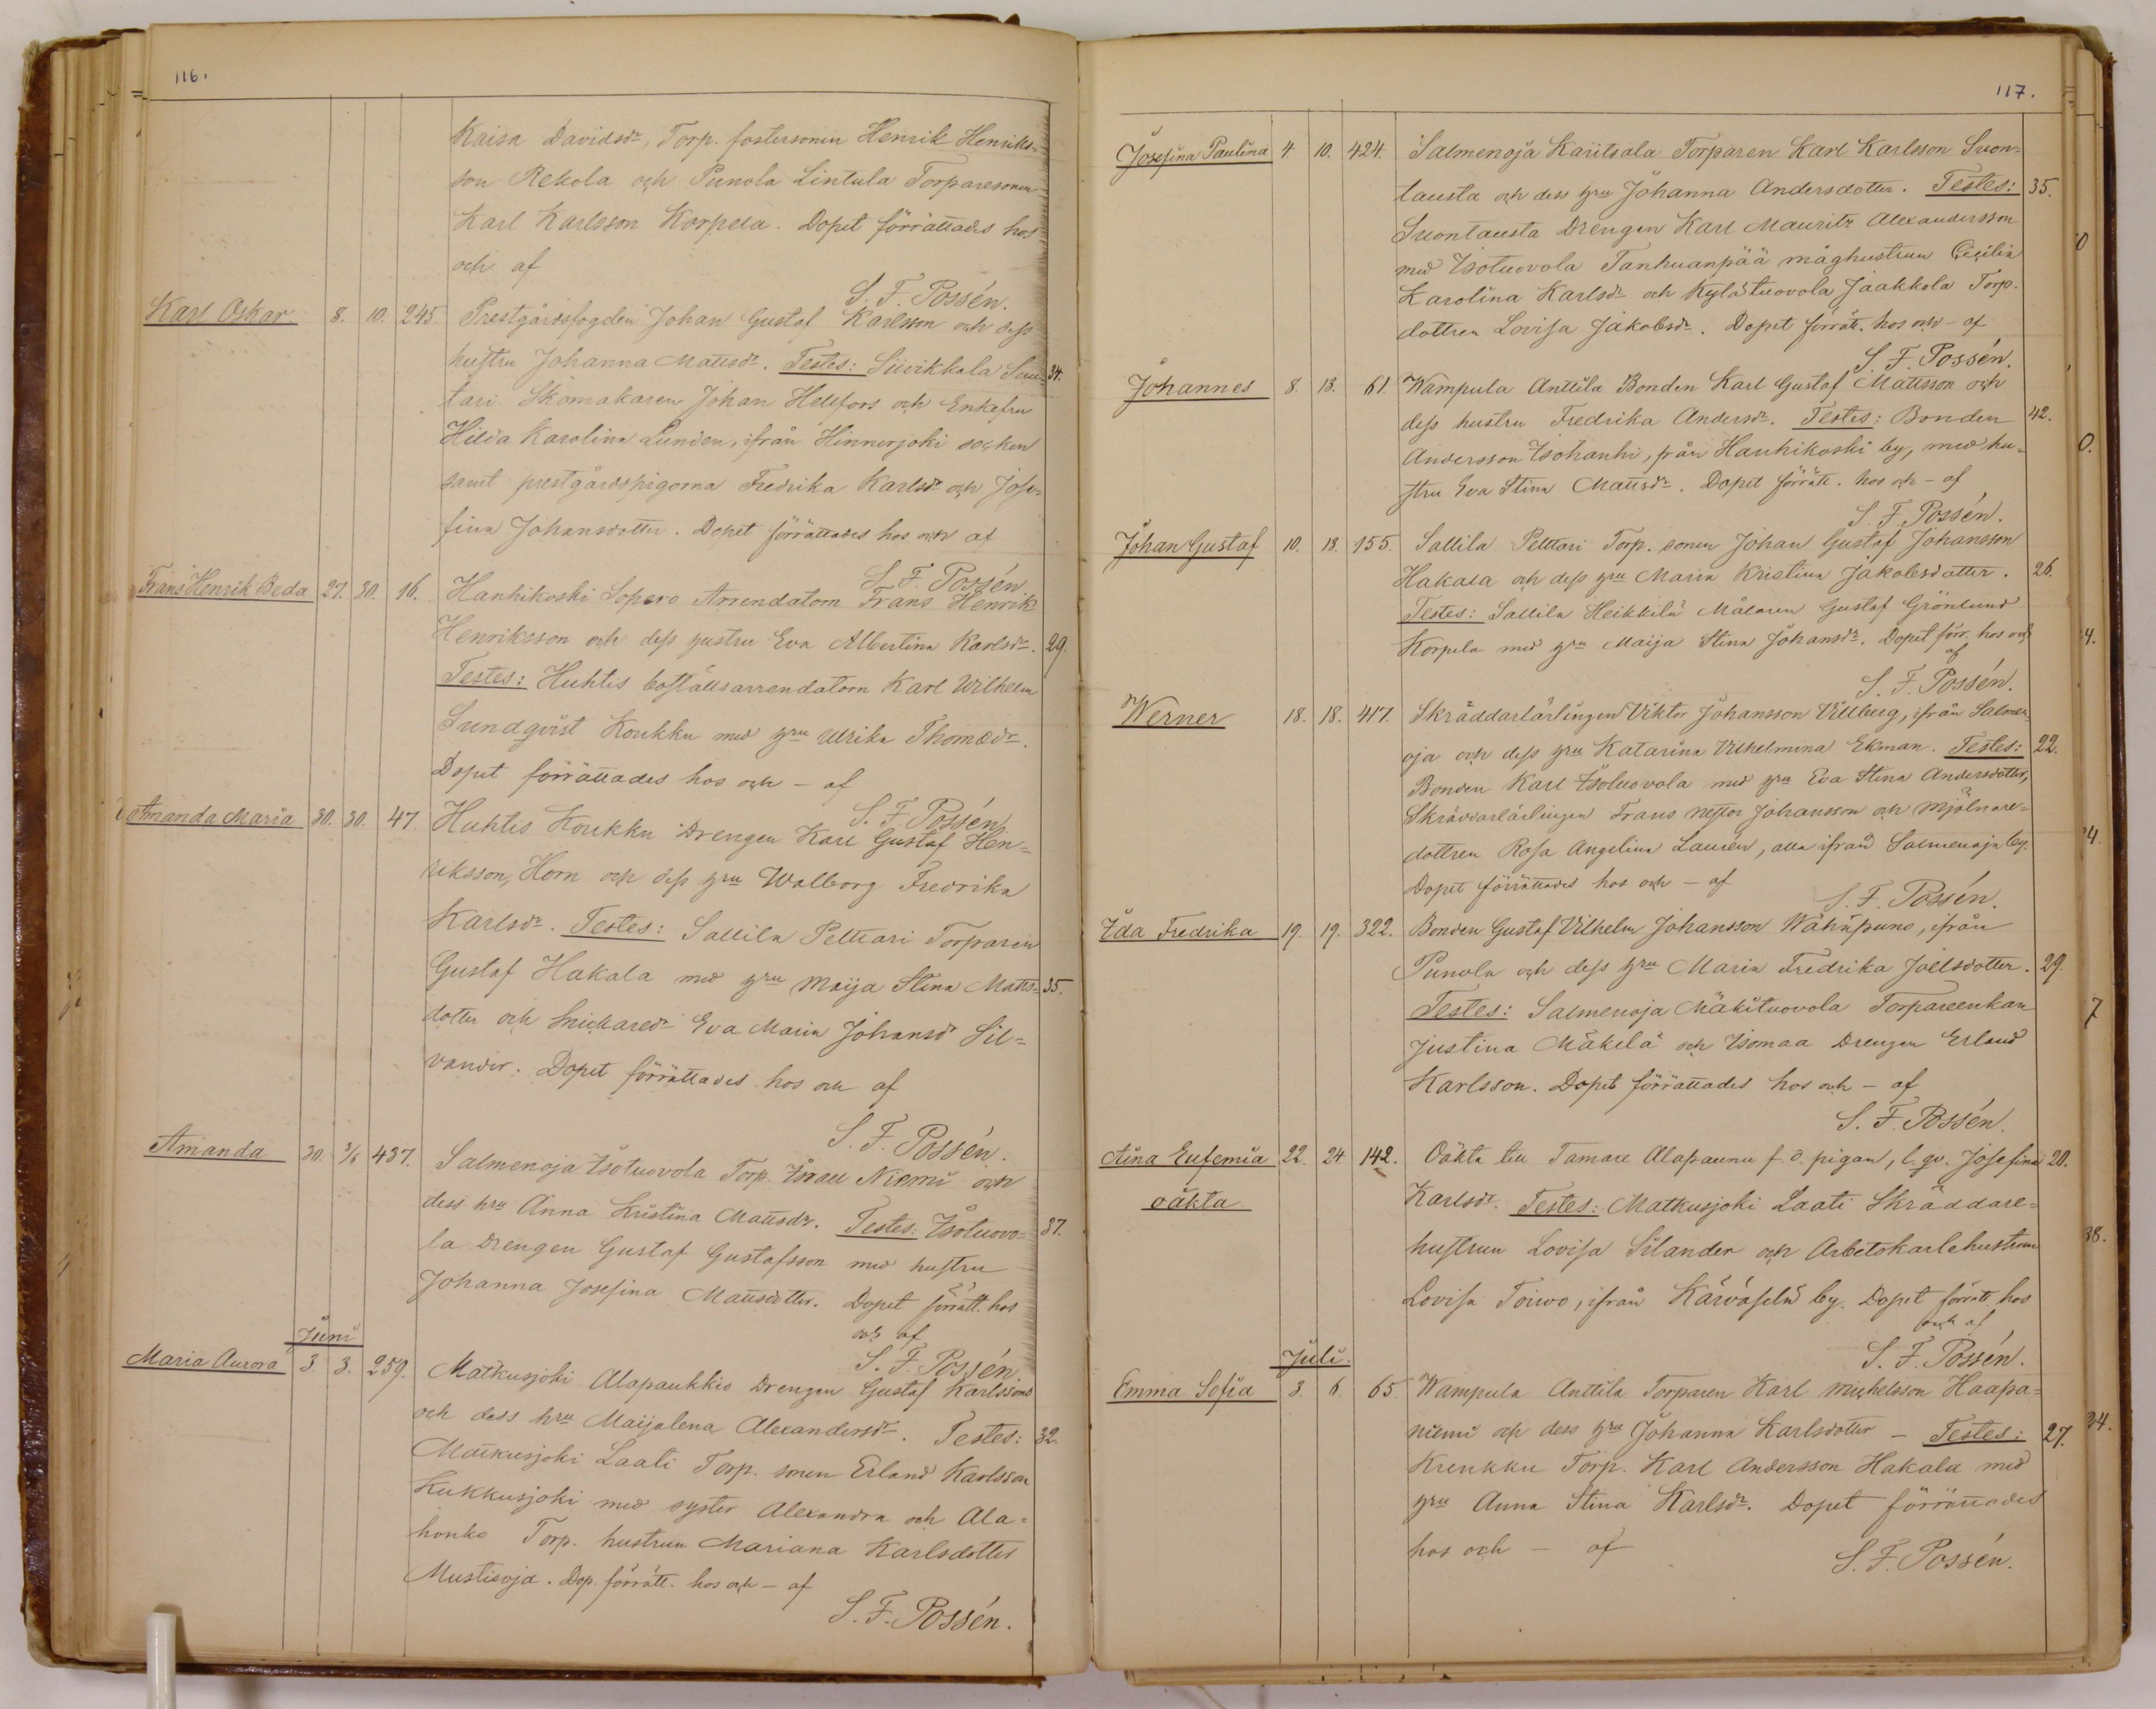 116.
Kaisa Davidsdr, Torp. fostersonen Henrik Henriks=
son Rekola och Punola Lintula Torparesonen
Karl Karlsson Korpela. Dopet förrättades hos
och af
S. F. Possén.
Karl Oskar 8. 10. 245. Prestgårdsfogden Johan Gustaf Karlsson och dess
hustru Johanna Mattsdr. Testes: Siivikkala Suu= 34.
tari Skomakaren Johan Hellfors och Enkefru
Hilda Karolina Lunden, ifrån Hinnerjoki socken
samt prestgårdspigorna Fredrika Karlsdr och Jose=
fina Johansdotter. Dopet förrättades hos och af
S. F. Possén
Frans Henrik Beda 27. 30. 16. Hanhikoski Sopero Arrendatorn Frans Henrik
Henriksson och dess hustru Eva Albertina Karlsdr. 29.
Testes: Huhtis boställsarrendatorn Karl Wilhelm
Sundqvist Koukku med hru Ulrika Thomædr.
Dopet förrättades hos och – af
S. F. Possén
Amanda Maria 30. 30. 47. Huhtis Koukku Drengen Karl Gustaf Hen=
riksson, Horn och dess hru Walborg Fredrika
Karlsdr. Testes: Sallila Pelttari Torparen
Gustaf Hakala med hru Maija Stina Matts= 35.
dotter och Snickaredr Eva Maria Johansdr Sil=
vander. Dopet förrättades hos och af
S. F. Possén.
Amanda 30. 3/6 437. Salmenoja Isotuovola Torp. Israel Niemi och
dess hru Anna Kristina Mattsdr. Testes: Isotuovo= 37.
la Drengen Gustaf Gustafsson med hustru
Johanna Josefina Mattsdotter. Dopet förrätt. hos
och af
S. F. Possén.
Juni
Maria Aurora 3. 3. 259. Matkusjoki Alapaukkio Drengen Gustaf Karlsson
och dess hru Maijalena Alexandersdr. Testes: 32.
Matkusjoki Laati Torp. sonen Erland Karlsson
Kukkusjoki med syster Alexandra och Ala=
honko Torp. hustrun Mariana Karlsdotter
Mustisoja. Dop. förrätt. hos och – af
S. F. Possén.
117.
Josefina Paulina 4. 10. 424. Salmenoja Kariitsala Torparen Karl Karlsson Suon=
tausta och dess hru Johanna Andersdotter. Testes: 35.
Suontausta Drengen Karl Mauritz Alexandersson
med Isotuovola Tanhuanpää måghustrun Cecilia
Karolina Karlsdr och Kylätuovola Jaakkola Torp.
dottren Lovisa Jakobsdr. Dopet förrätt. hos och – af
S. F. Possén.
Johannes 8. 13. 61. Wampula Anttila Bonden Karl Gustaf Mattsson och
dess hustru Fredrika Andersdr. Testes: Bonden 42.
Andersson Isohanhi, från Hanhikoski by, med hu=
stru Eva Stina Mattsdr. Dopet förrätt. hos och – af
S. F. Possén.
Johan Gustaf 10. 13. 155. Sallila Pelttari Torp. sonen Johan Gustaf Johansson
Hakala och dess hru Maria Kristina Jakobsdotter. 26.
Testes: Sallila Heikkilä Målaren Gustaf Grönlund
Korpela med hru Maija Stina Johansdr. Dopet förr. hos och
af
S. F. Possén.
Werner 18. 18. 417. Skräddarlärlingen Viktor Johansson Villberg, ifrån Salmen=
oja och dess hru Katarina Vilhelmina Ekman. Testes: 22.
Bonden Karl Isotuovola med hru Eva Stina Andersdotter,
Skräddarlärlingen Frans Nestor Johansson och Mjölnare=
dottren Rosa Angelina Lauren, alla ifrån Salmenoja by.
Dopet förrättades hos och – af
S. F. Possén.
Ida Fredrika 19. 19. 322. Bonden Gustaf Vilhelm Johansson Wähäpuno, ifrån
Punola och dess hru Maria Fredrika Joelsdotter. 29.
Testes: Salmenoja Mäkituovola Torpareenkan
Justina Mäkelä och Isomaa Drengen Erland
Karlsson. Dopet förrättades hos och – af
S. F. Possén.
Aina Eufemia 22. 24 142. Oäkta till Tamare Alapaunu f. d. pigan, l. qv. Josefina 20.
oäkta Karlsdr. Testes: Matkusjoki Laati Skräddare=
hustrun Lovisa Silander och Arbetskarlehustrun
Lovisa Toiwo, ifrån Kärväselä by. Dopet förrätt. hos
och af
S. F. Possén.
Juli.
Emma Sofia 3. 6. 65. Wampula Anttila Torparen Karl Michelsson Haapa=
niemi och dess hru Johanna Karlsdotter – Testes: 27.
Krenkku Torp. Karl Andersson Hakala med
hru Anna Stina Karlsdr. Dopet förrättades
hos och – af
S. F. Possén.